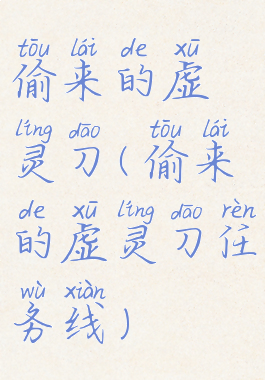 tōu lái de xū
偷来的虚
líng dāo tōu lái
灵刀(偷来
de xū líng dāo rèn
的虚灵刀任
wù xiàn
务线)